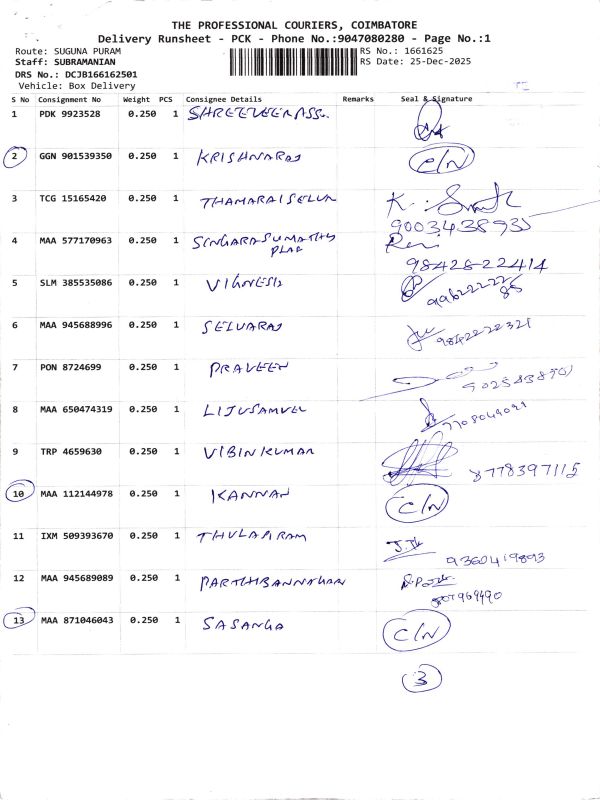 THE PROFESSIONAL COURIERS, COIMBATORE
Delivery Runsheet - PCK - Phone No.:9047080280 - Page No.:1
Route: SUGUNA PURAM RS No.: 1661625
Staff: SUBRAMANIAN RS Date: 25-Dec-2025
DRS No.: DCJB166162501
Vehicle: Box Delivery
S No Consignment No Weight PCS Consignee Details Remarks Seal & Signature
1 PDK 9923528 0.250 1 SHREEVEERASS.
2 GGN 901539350 0.250 1 KRISHNARAJ C/N
3 TCG 15165420 0.250 1 THAMARAISELVN K.
9003438935
4 MAA 577170963 0.250 1 SINGARASUMATHY
98428-22414
5 SLM 385535086 0.250 1 VIGNESH
6 MAA 945688996 0.250 1 SELVARAJ 9842222321
7 PON 8724699 0.250 1 PRAVEEN
8 MAA 650474319 0.250 1 LIJUSAMVEL
9 TRP 4659630 0.250 1 VIBINKUMAR 8778397115
10 MAA 112144978 0.250 1 KANNAN C/N
11 IXM 509393670 0.250 1 THULASIRAM
9360419893
12 MAA 945689089 0.250 1
13 MAA 871046043 0.250 1 SASANGA C/N
3